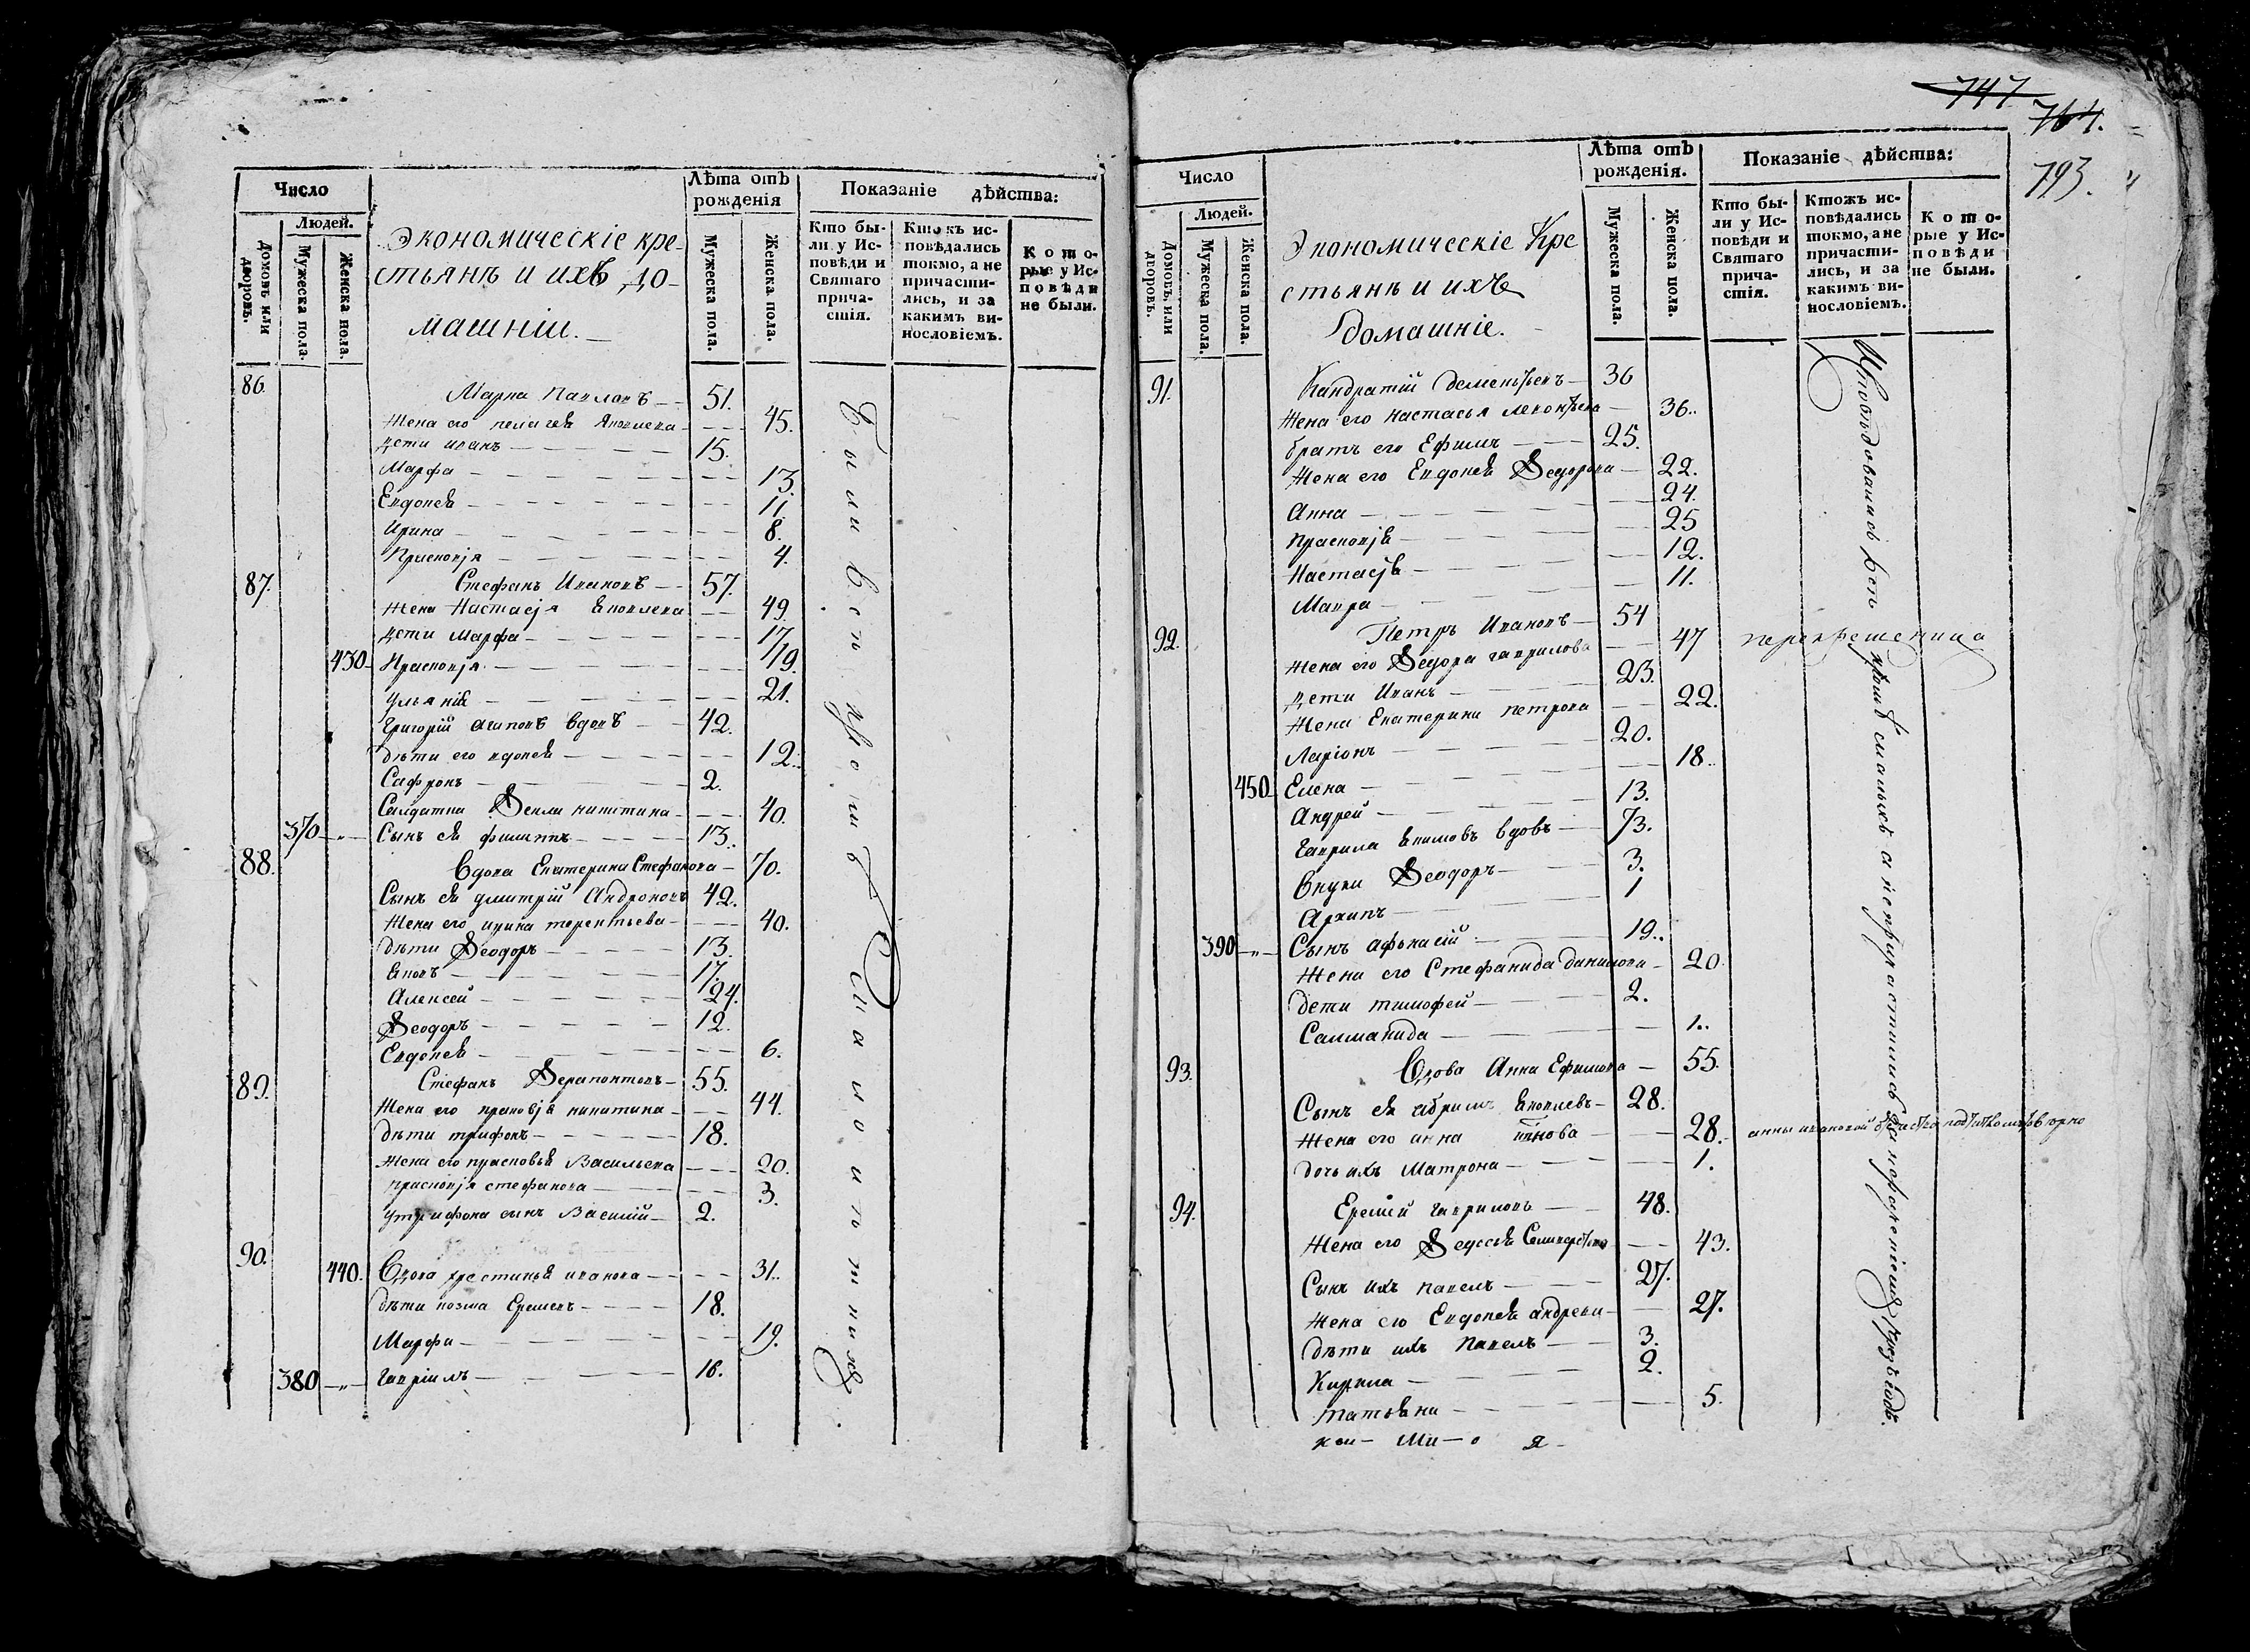 Число
Людей.
Домовъ или дворовъ.
Мужеска пола.
Женска пола.
Экономическіе кре-
стьянѣ и ихъ до-
машніи.
Лѣта отъ
рожденія
Мужеска пола.
Женска пола.
Показаніе дѣйства:
Кто бы-
ли у Ис-
повѣди и
Святаго
прича-
стія.
Кто жъ ис-
повѣдались
токмо, а не
причасти-
лись, и за
какимъ ви-
нословіемъ.
Кото-
рые у Ис-
повѣди
не были.
86. Марка Павловъ 51.
Жена его пелагея Яковлева 45.
дети иванъ 15.
Марфа 13.
Евдокея 11.
Ирина 8.
Прасковја 4.
87. Стефанъ Ивановъ 57.
Жена Настасја Яковлева 49.
дети Марфа 17.
430 Прасковја 19.
Ульяния 21.
Григорій агаповъ вдовъ 42.
дѣти его евдокея 12.
Сафронъ 2.
Салдатка Ѳекла никитина 40.
370 Сынъ ея филиппъ 13.
88. Вдова Екатерина Стефанова 70.
Сынъ ея дмитрій Андроновъ 42.
Жена его ирина терентьева 40.
дѣти Ѳеодоръ 13.
Яковъ 17.
Алексей 24.
Ѳеодоръ 12.
Евдокея 6.
89. Стефанъ Ѳерапонтовъ 55.
Жена его прасковја никитина 44.
дѣти трифонъ 18.
Жена его прасковья Васильева 20.
прасковја стефанова 3.
у трифона сынъ Василій 2.
90. 440. Вдова христинья иванова 31.
дѣти козма Еремевъ 18.
Марфа 19.
380 Гавріилъ 16.
747
764.
793.
Число
Людей.
Домовъ, или дворовъ.
Мужеска пола.
Женска пола.
Экономическіе Кре
стьянѣ и ихъ
домашніе.
Лѣта отъ
рожденія.
Мужеска пола.
Женска пола.
Показаніе дѣйства:
Кто бы-
ли у Ис-
повѣди и
Святаго
прича-
стія.
Ктожъ ис-
повѣдались
токмо, а не
причасти-
лись, и за
какимъ ви-
нословіемъ.
Кото-
рые у Ис-
повѣди
не были.
91. Кандратій дементьевъ 36
Жена его настасья леонтьева 36.
братъ его Ефимъ 25.
Жена его Евдокея Ѳедорова 22.
Анна 24.
Прасковја 25
Настасја 12.
Мавра 11.
92. Петръ Ивановъ 54
Жена его Ѳедора гаврилова 47
дети Иванъ 23.
Жена Екатерина петрова 22.
Ларіонъ 20.
450 Елена 18.
Андрей 13.
Гаврила Якимовъ вдовъ 73.
Внуки Ѳеодоръ 3.
Архипъ 1
390 Сынъ афонасій 19.
Жена его Стефанида данилова 20.
дети тимофей 2.
Саламанида 1.
93. Вдова Анна Ефимова 55.
Сынъ ея абрамъ Яковлевъ 28.
Жена его анна 28.
дочь ихъ Матрона 1.
94. Еремѣй гавриловъ 48.
Жена его Ѳедосья 43.
Сынъ ихъ павелъ 27.
Жена его Евдокея андреева 27.
дѣти ихъ Павелъ 3.
Кирила 2.
Татьяна 5.